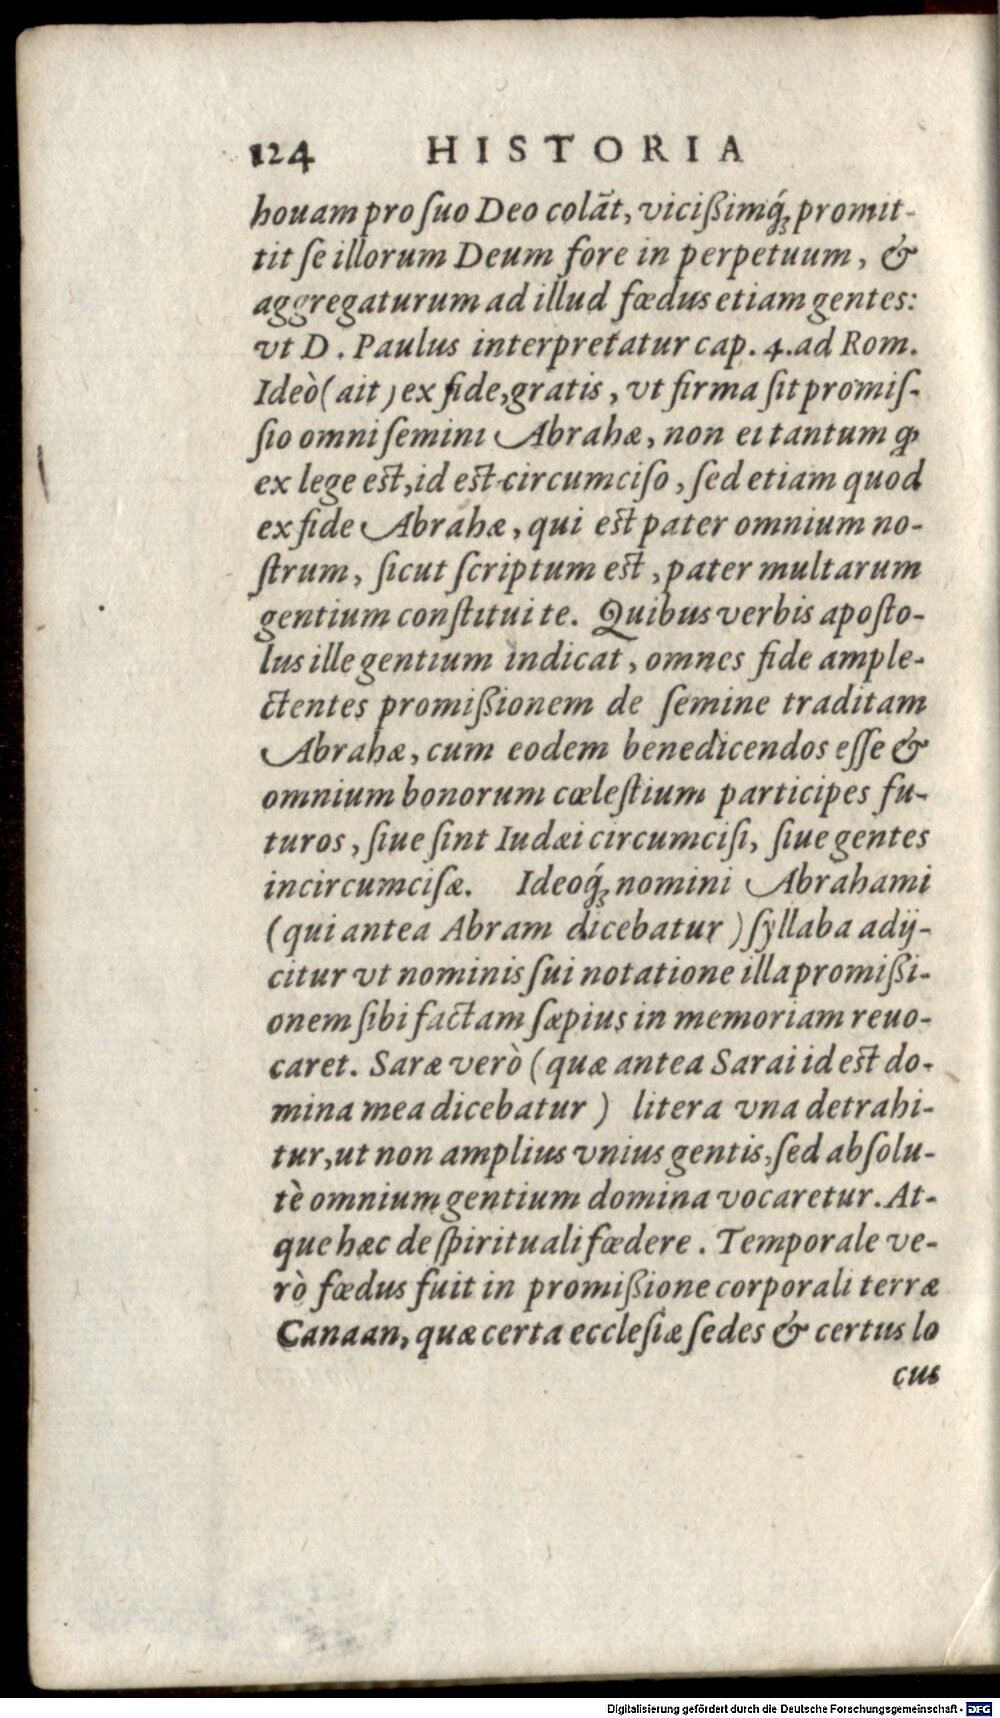 124 HISTORIA
houam pro ſuo Deo colãt, vicißimq́; promit-
tit ſe illorum Deum fore in perpetuum, &
aggregaturum ad illud fœdus etiam gentes:
vt D. Paulus interpretatur cap. 4. ad Rom.
Ideò (ait) ex fide, gratis, vt firma ſit promiſ-
ſio omni ſemini Abrahæ, non ei tantum ꝙ
ex lege est, id est circumciſo, ſed etiam quod
ex fide Abrahæ, qui est pater omnium no-
ſtrum, ſicut ſcriptum est, pater multarum
gentium conſtitui te. Quibus verbis apoſto-
lus ille gentium indicat, omnes fide ample-
ctentes promißionem de ſemine traditam
Abrahæ, cum eodem benedicendos eſſe &
omnium bonorum cœleſtium participes fu-
turos, ſiue ſint Iudæi circumciſi, ſiue gentes
incircumciſæ. Ideoq́; nomini Abrahami
(qui antea Abram dicebatur) ſyllaba adij-
citur vt nominis ſui notatione illa promißi-
onem ſibi factam ſæpius in memoriam reuo-
caret. Saræ verò (quæ antea Sarai id est do-
mina mea dicebatur) litera vna detrahi-
tur, ut non amplius vnius gentis, ſed abſolu-
tè omnium gentium domina vocaretur. At-
que hæc de ſpirituali fœdere. Temporale ve-
rò fœdus fuit in promißione corporali terræ
Canaan, quæ certa eccleſiæ ſedes & certus lo
cus
Digitalisierung gefördert durch die Deutsche Forschungsgemeinschaft - DFG